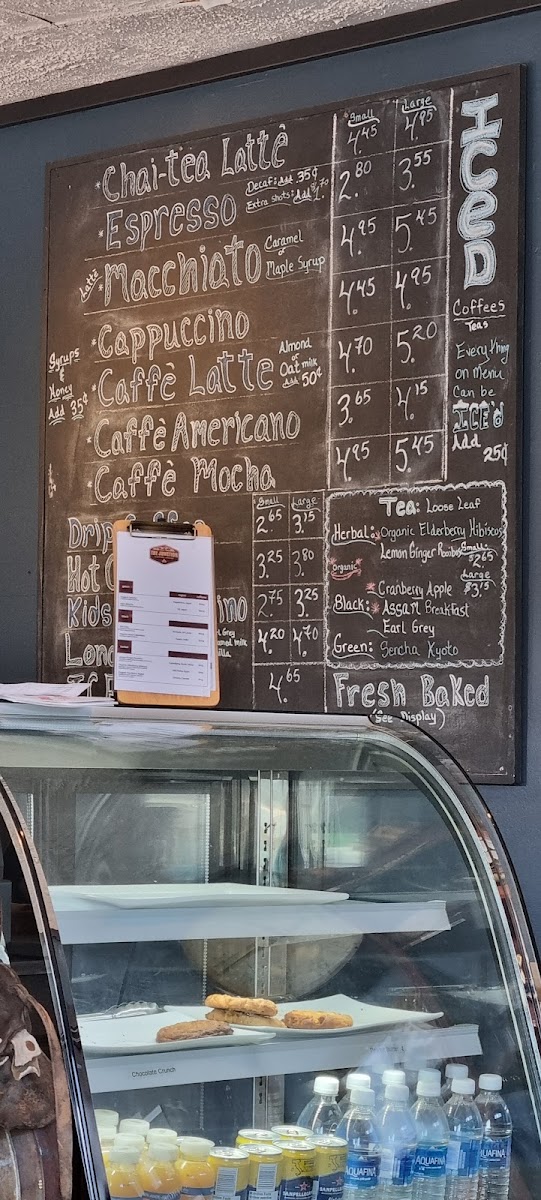 Small Large
*Chai-tea Lattè 4.45 4.95
*Espresso Decaf: Add .35¢ 2.80 3.55
Extra Shots: Add $1.70
Lattè *Macchiato Caramel or Maple Syrup 4.95 5.45
*Cappuccino 4.45 4.95
*Caffè Latte Almond or Oat milk Add 50¢ 4.70 5.20
*Caffè Americano 3.65 4.15
*Caffè Mocha 4.95 5.45
Syrups
&
Honey
Add 35¢
ICED
Coffees
Teas
Everything
on menu
Can be
ICE'd
Add
25¢
Small Large
Drip 2.65 3.15
Hot 3.25 3.80
Kids ino 2.75 3.25
Lon 4.20 4.70
4.65
Tea: Loose Leaf
Herbal: Organic Elderberry Hibiscus
Lemon Ginger Rooibos
Small:
$2.65
Large
$3.15
Organic
Cranberry Apple
Black: Assam Breakfast
Earl Grey
Green: Sencha Kyoto
Fresh Baked
(See Display)
Chocolate Crunch
AQUAFINA
AQUAFINA
AQUAFINA
SANPELLEGRINO